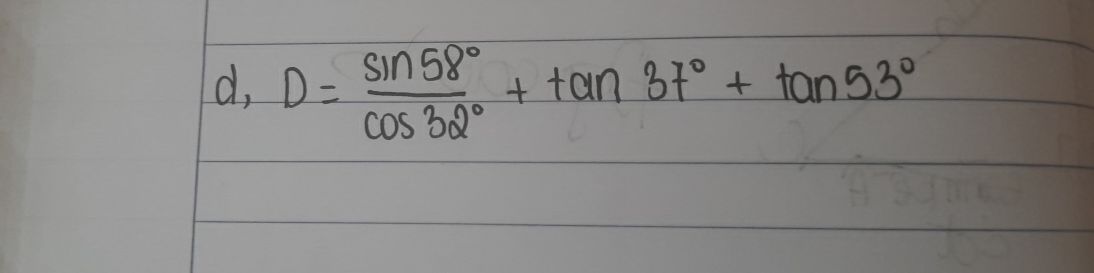 d, D = sin 58° / cos 32° + tan 37° + tan 53°